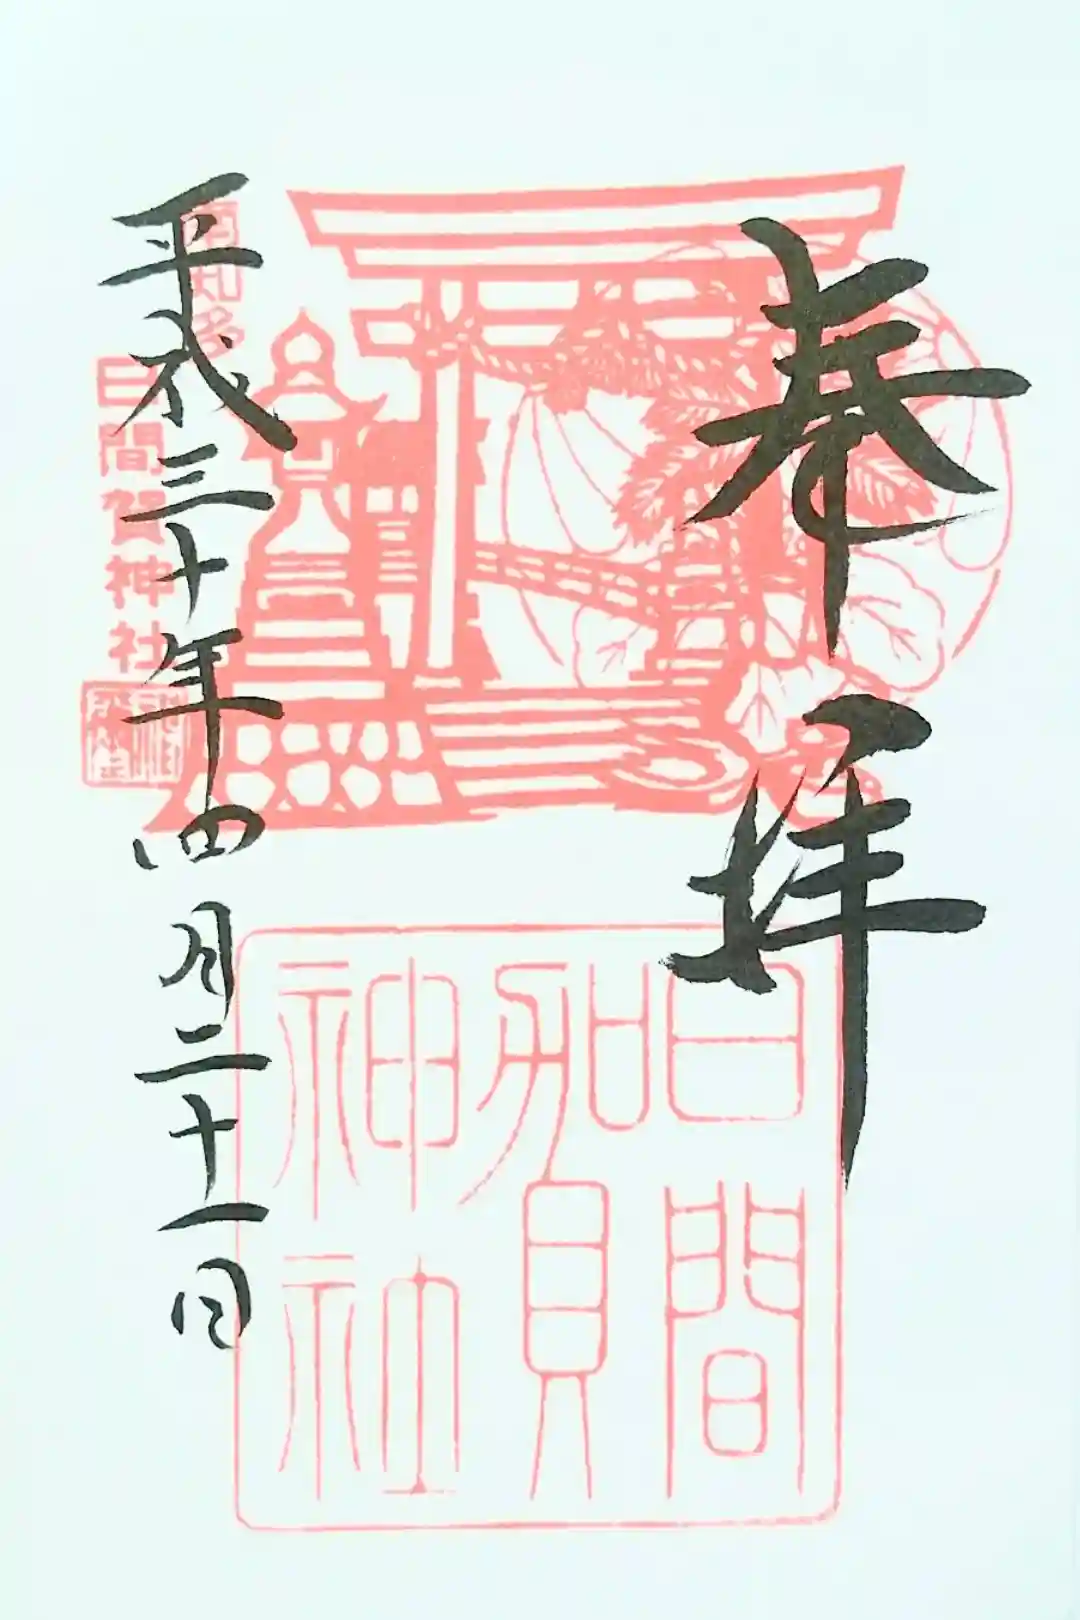 奉拝
日間
賀
神社
南知多
日間賀神社
平成三十年四月二十一日